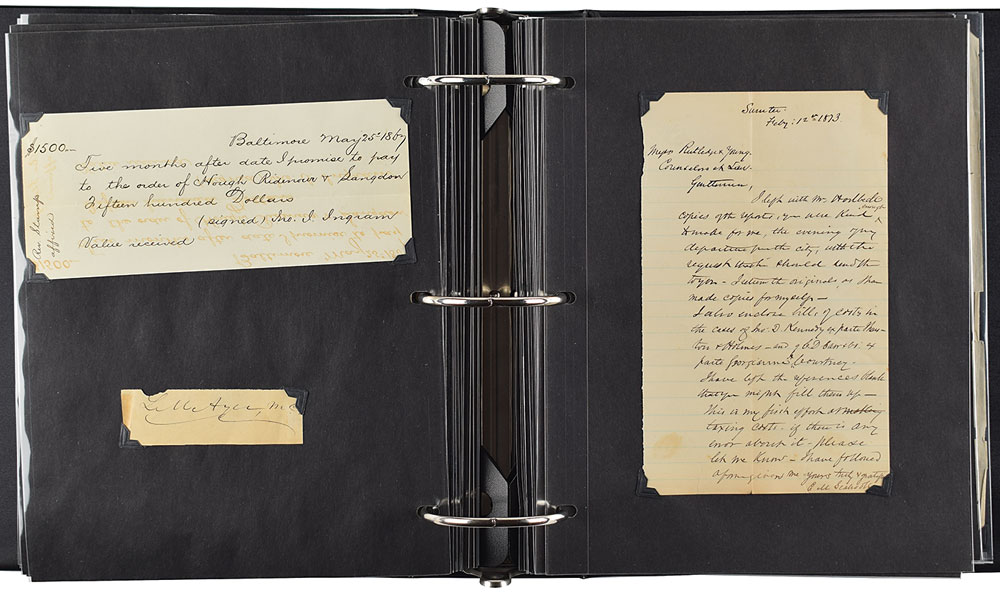 $1500.—
Baltimore May 25th 1867
Five months after date I promise to pay
to the order of Hough Ridenour & Langdon
Fifteen hundred Dollars
(signed) Jno. I Ingram
Value received
Rev Stamps
affixed
Sumter
Feby: 12th 1873.
Messrs Rutledge & Young
Counselors at Law
Gentlemen,
I left with Mr.
copies of the reports, you were kind enough
to make for me, the evening of my
departure from the city, with the
request that he should send them
to you - I return the originals, as I have
made copies for myself —
I also enclose bills of costs in
the cases of Jno. D. Kennedy ex parte
& Holmes — and of
parte Georgianna Courtney.
I have left the references blank
that you might fill them up —
This is my first effort at making
taxing costs. if there is any
error about it - please
let me know — I have followed
a form given me. yours truly &